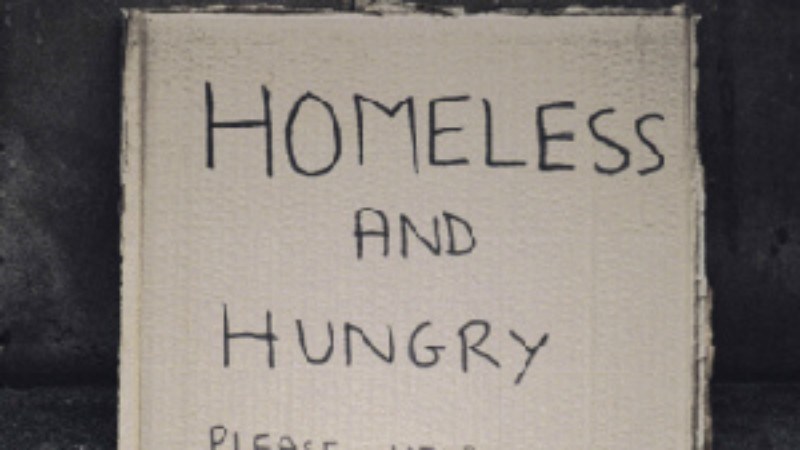 HOMELESS
AND
HUNGRY
PLEASE HELP